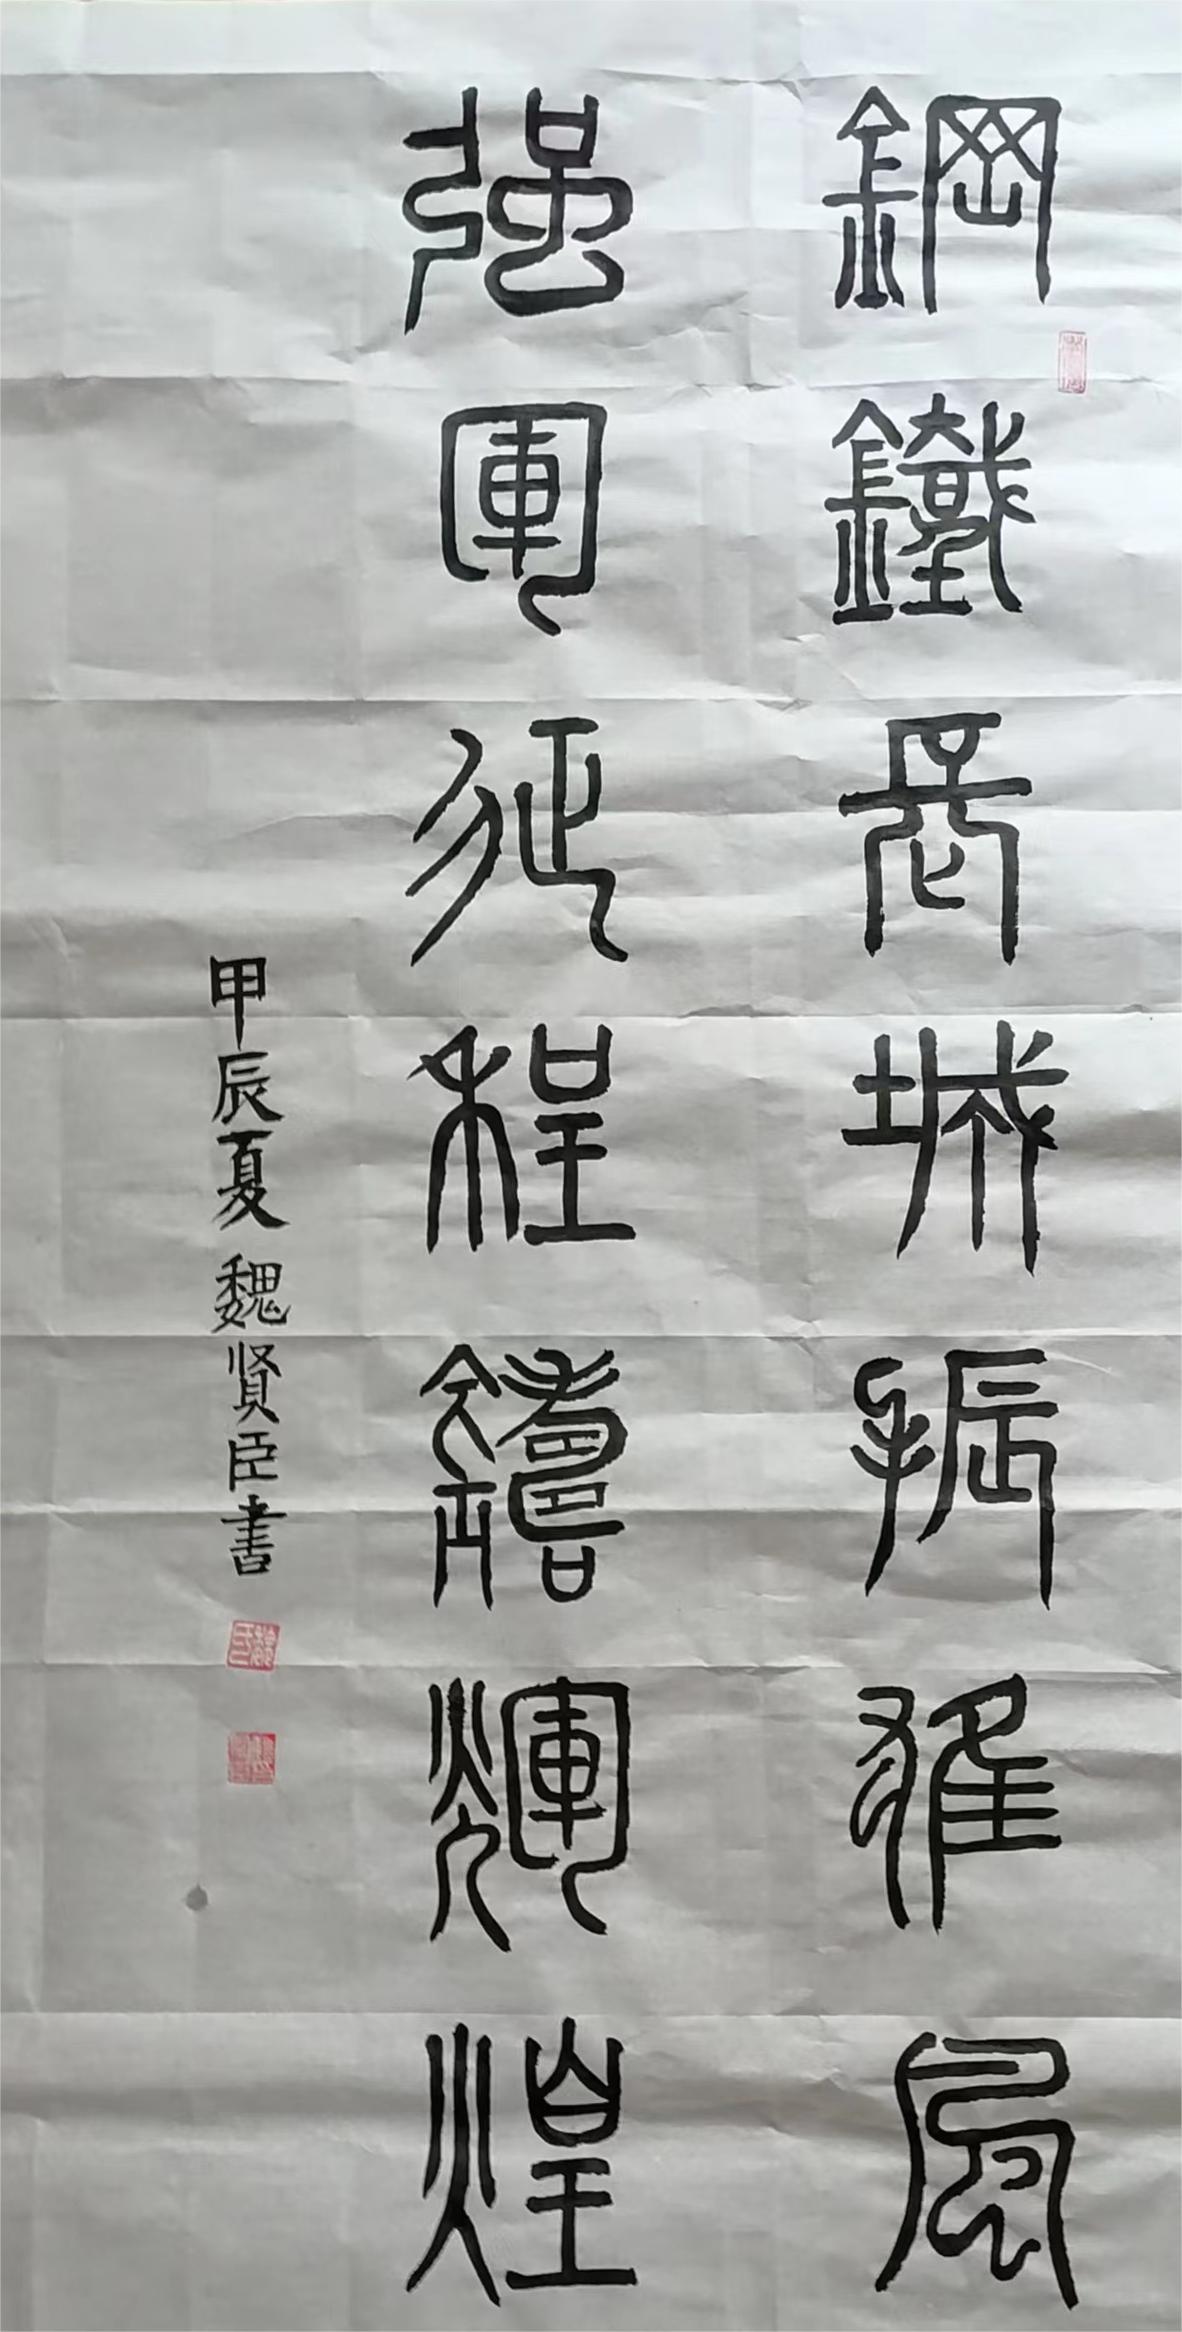 鋼鐵長城振雄風
强軍征程鑄輝煌
甲辰夏魏贤臣書